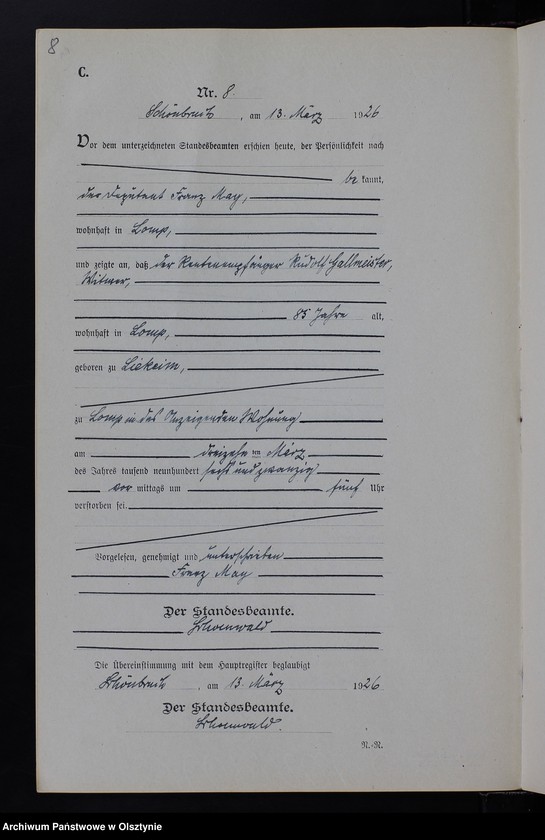 8
C.
Nr. 8.
Schönbruch, am 13. März 1926
Vor dem unterzeichneten Standesbeamten erschien heute, der Persönlichkeit nach
bekannt,
der Deputant Franz May,
wohnhaft in Lomp,
und zeigte an, daß der Rentenempfänger Rudolf Hallmeister,
Witwer,
85 Jahre alt,
wohnhaft in Lomp,
geboren zu Liekeim,
zu Lomp in des Anzeigenden Wohnung
am dreizehnten März
des Jahres tausend neunhundert sechsundzwanzig
vor mittags um fünf Uhr
verstorben sei.
Vorgelesen, genehmigt und unterschrieben
Franz May
Der Standesbeamte.
Schoenwald
Die Übereinstimmung mit dem Hauptregister beglaubigt
Schönbruch, am 13. März 1926
Der Standesbeamte.
Schoenwald.
N.-N.
Archiwum Państwowe w Olsztynie